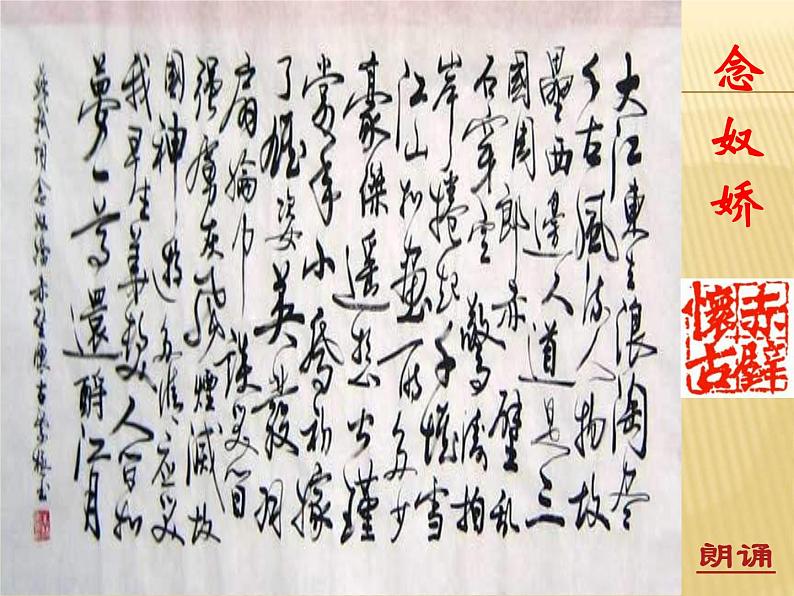 念奴娇
赤壁
懷古
朗诵
大江東去浪淘尽
千古風流人物故
壘西邊人道是三
國周郎赤壁乱
石穿空驚濤拍
岸捲起千堆雪
江山如画一时多少
豪傑遥想公瑾
當年小喬初嫁
了雄姿英發羽
扇綸巾談笑间
强虜灰飛煙滅故
國神遊多情應笑
我早生華髮人间如
夢一尊還酹江月
蘇軾词念奴嬌赤壁懷古